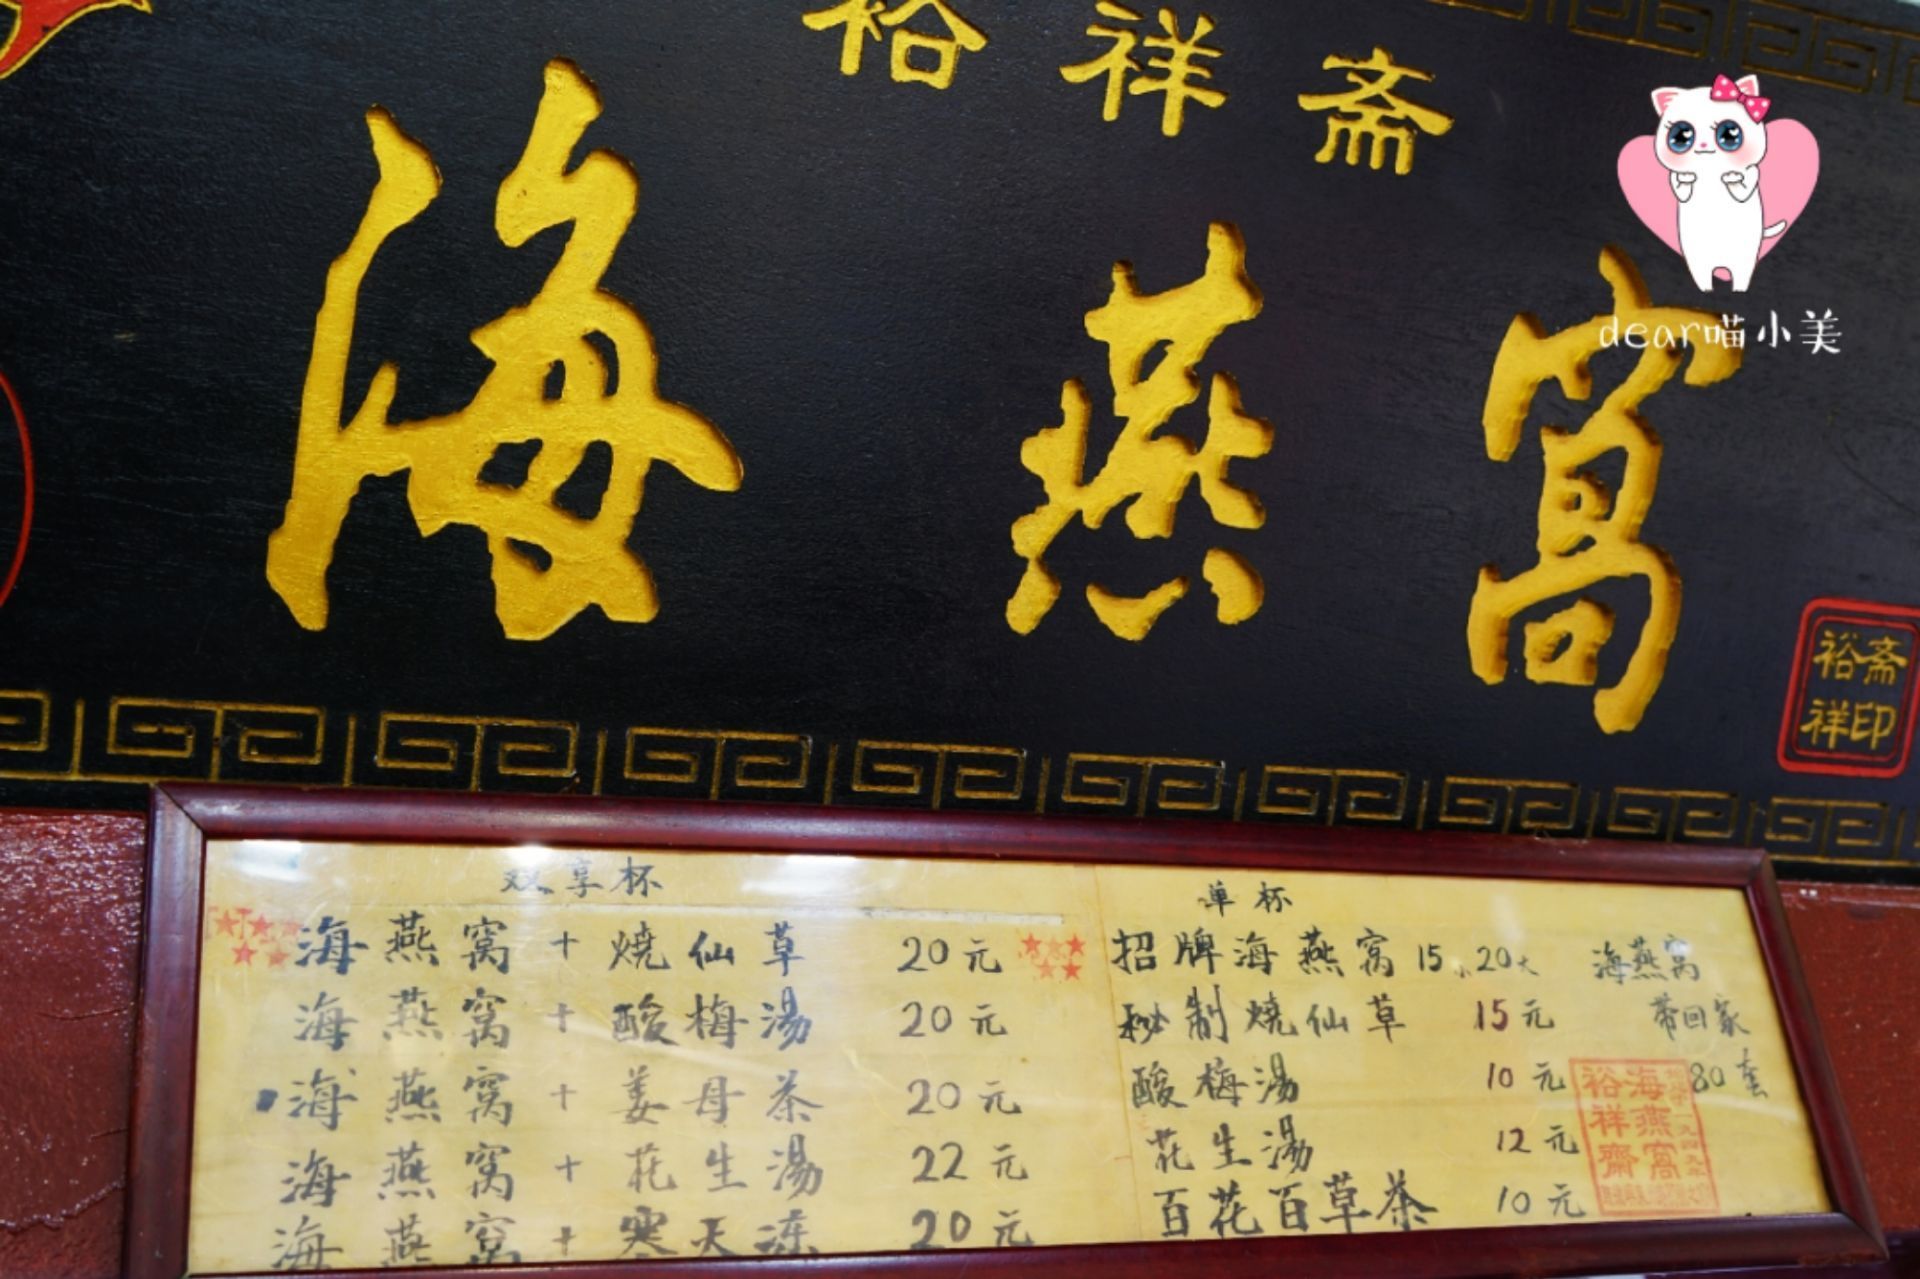 裕祥斋
海燕窝
dear喵小美
裕斋
祥印
双享杯
海燕窝+燒仙草 20元
海燕窝+酸梅湯 20元
海燕窝+姜母茶 20元
海燕窝+花生湯 22元
海燕窝+寒天冻 20元
单杯
招牌海燕窝 15小 20大
秘制燒仙草 15元
酸梅湯 10元
花生湯 12元
百花百草茶 10元
海燕窝
带回家
80套
海燕窝
裕祥齋